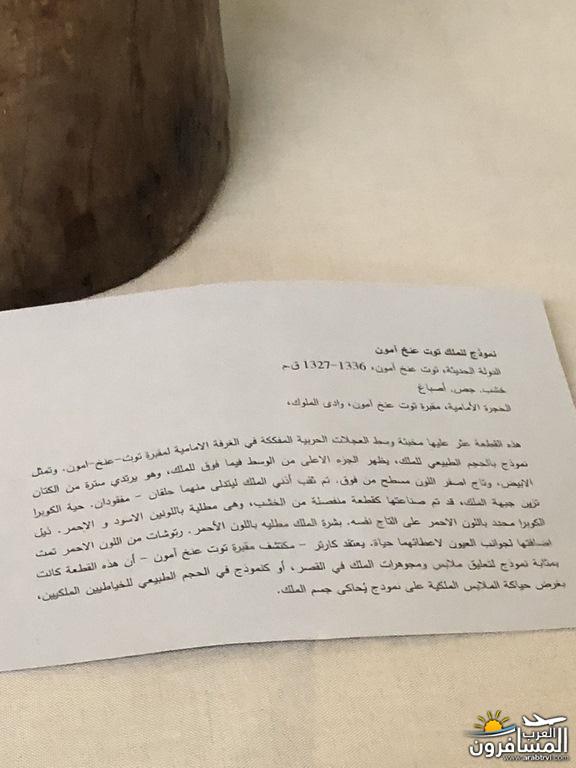 نموذج للملك توت عنخ آمون
الدولة الحديثة، توت عنخ أمون، 1336–1327 ق.م
خشب. جص. أصباغ
الحجرة الأمامية، مقبرة توت عنخ أمون، وادى الملوك،
هذه القطعة عثر عليها مخبئة وسط العجلات الحربية المفككة في الغرفة الامامية لمقبرة توت-عنخ-امون. وتمثل
نموذج بالحجم الطبيعي للملك، يظهر الجزء الاعلى من الوسط فيما فوق للملك، وهو يرتدي سترة من الكتان
الابيض، وتاج اصفر اللون مسطح من فوق. تم ثقب أذني الملك ليتدلى منهما حلقان – مفقودان. حية الكوبرا
تزين جبهة الملك، قد تم صناعتها كقطعة منفصلة من الخشب، وهى مطلية باللونين الاسود و الاحمر. ذيل
الكوبرا محدد باللون الاحمر على التاج نفسه. بشرة الملك مطليه باللون الأحمر. رتوشات من اللون الاحمر تمت
اضافتها لجوانب العيون لاعطائهما حياة. يعتقد كارتر – مكتشف مقبرة توت عنخ آمون – أن هذه القطعة كانت
بمثابة نموذج لتعليق ملابس ومجوهرات الملك في القصر، أو كنموذج في الحجم الطبيعي للخياطيين الملكيين،
بغرض حياكة الملابس الملكية على نموذج يُحاكى جسم الملك.
العرب
المسافرون
www.arabtrvl.com